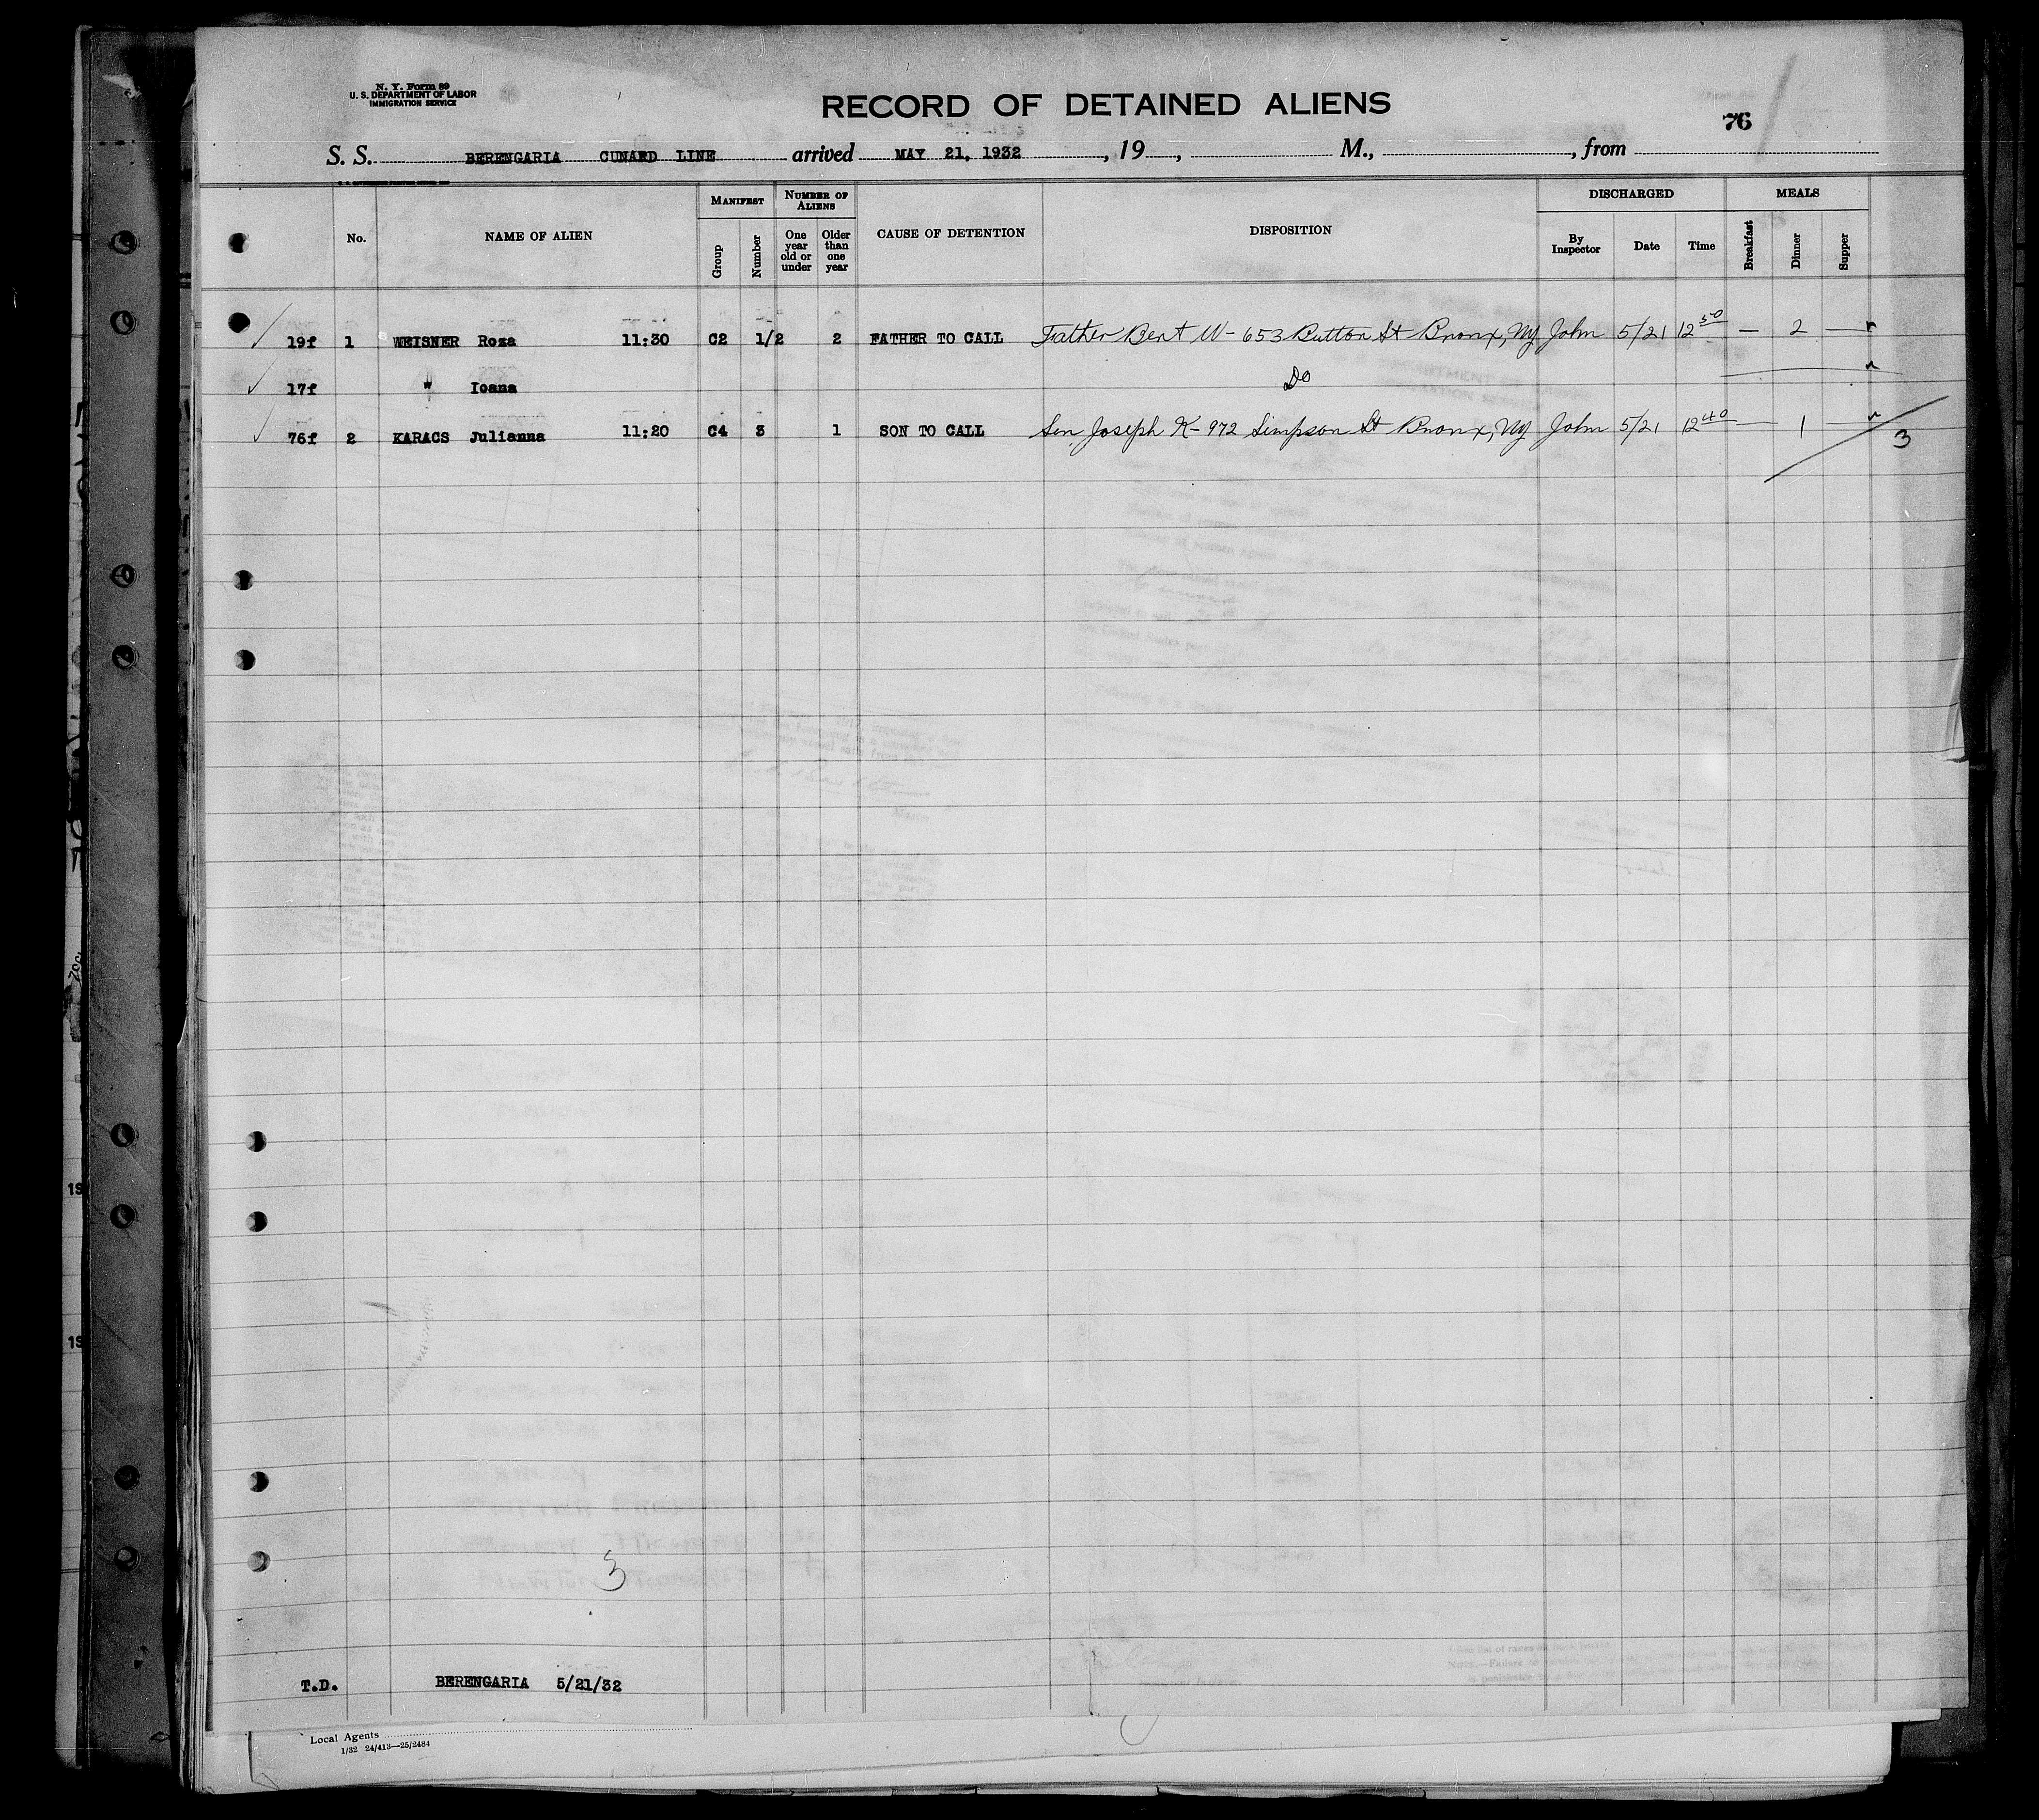 N. Y. Form 89
U. S. DEPARTMENT OF LABOR
IMMIGRATION SERVICE
RECORD OF DETAINED ALIENS
76
S. S. BERENGARIA CUNARD LINE arrived MAY 21, 1932, 19 , M., , from
No. NAME OF ALIEN MANIFEST Group Number NUMBER OF ALIENS One year old or under Older than one year CAUSE OF DETENTION DISPOSITION DISCHARGED By Inspector Date Time MEALS Breakfast Dinner Supper
19f 1 WEISNER Roza 11:30 C2 1/2 2 FATHER TO CALL Father Bert W - 653 Button St Bronx, NY John 5/21 12 50 — 2 —
17f " Ioana Do
76f 2 KARACS Julianna 11:20 C4 3 1 SON TO CALL Son Joseph K - 972 Simpson St Bronx, NY John 5/21 12 40 — 1 —
3
3
T.D. BERENGARIA 5/21/32
Local Agents
1/32 24/413—25/2484